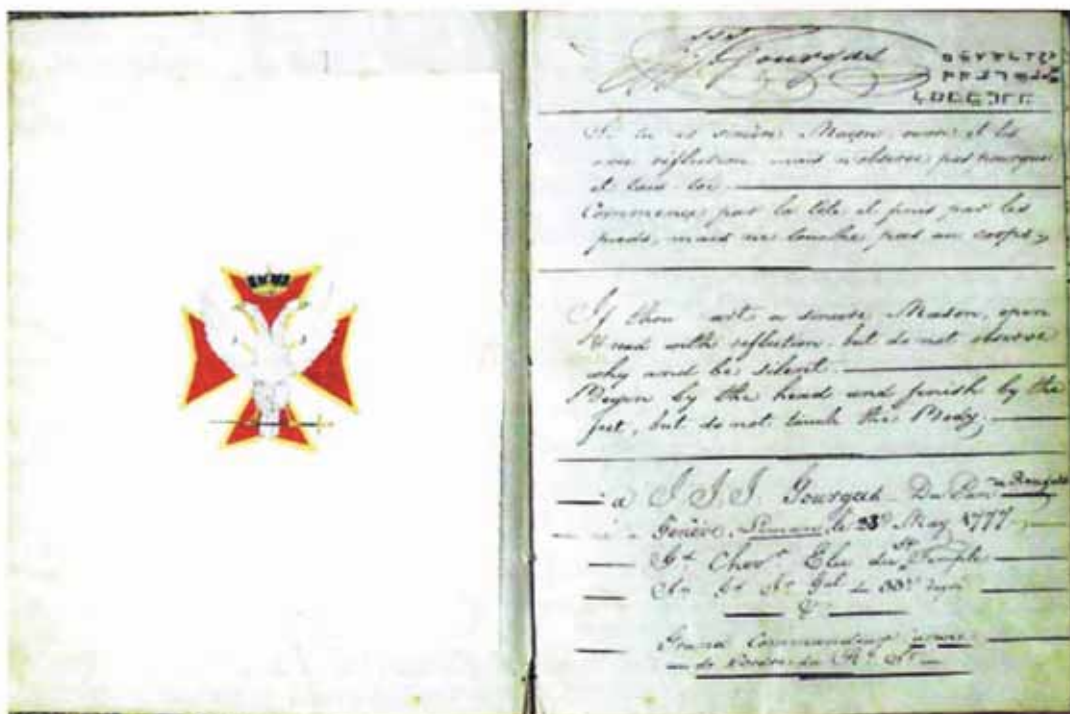 J.J.J. Gourgas
Si tu es sincère Maçon, ouvre et lis
avec réflection mais n'observe pas pourquoi
et tais toi.
Commence par la tête et finis par les
pieds, mais ne touche pas au corps,
If thou art a sincere Mason, open
& read with reflection, but do not observe
why and be silent.
Begin by the head and finish by the
feet, but do not touch the Body,
a J. J. J. Gourgas Du Pan
Genève, Leman, le 23d May 1777
Gd Chevr Elu du St Temple
Gl du 33e
&
Grand Commandeur
de l'ordre du